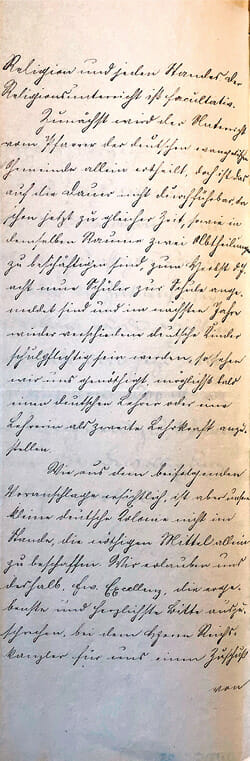 Religion und jeden Standes der
Religionsunterricht ist facultativ.
Zunächst wird der Unterricht
vom Pfarrer der deutschen evangelischen
Gemeinde allein ertheilt, doch ist das
auf die Dauer nicht durchführbar, da
schon jetzt zu gleicher Zeit, sowie in
demselben Raume zwei Abtheilungen
zu beschäftigen sind, zum Herbst
acht neue Schüler zur Schule ange-
meldet sind und im nächsten Jahr
wieder verschiedene deutsche Kinder
schulpflichtig sein werden, so sehen
wir uns genöthigt, möglichst bald
einen deutschen Lehrer oder eine
Lehrerin als zweite Lehrkraft anzu-
stellen.
Wie aus dem beifolgenden
Voranschlage ersichtlich, ist aber unsere
kleine deutsche Kolonie nicht im
Stande, die nöthigen Mittel allein
zu beschaffen. Wir erlauben uns
deshalb, Ew. Excellenz, die erge-
benste und herzlichste Bitte auszu-
sprechen, bei dem Herrn Reichs-
kanzler für uns einen Zuschuß
von